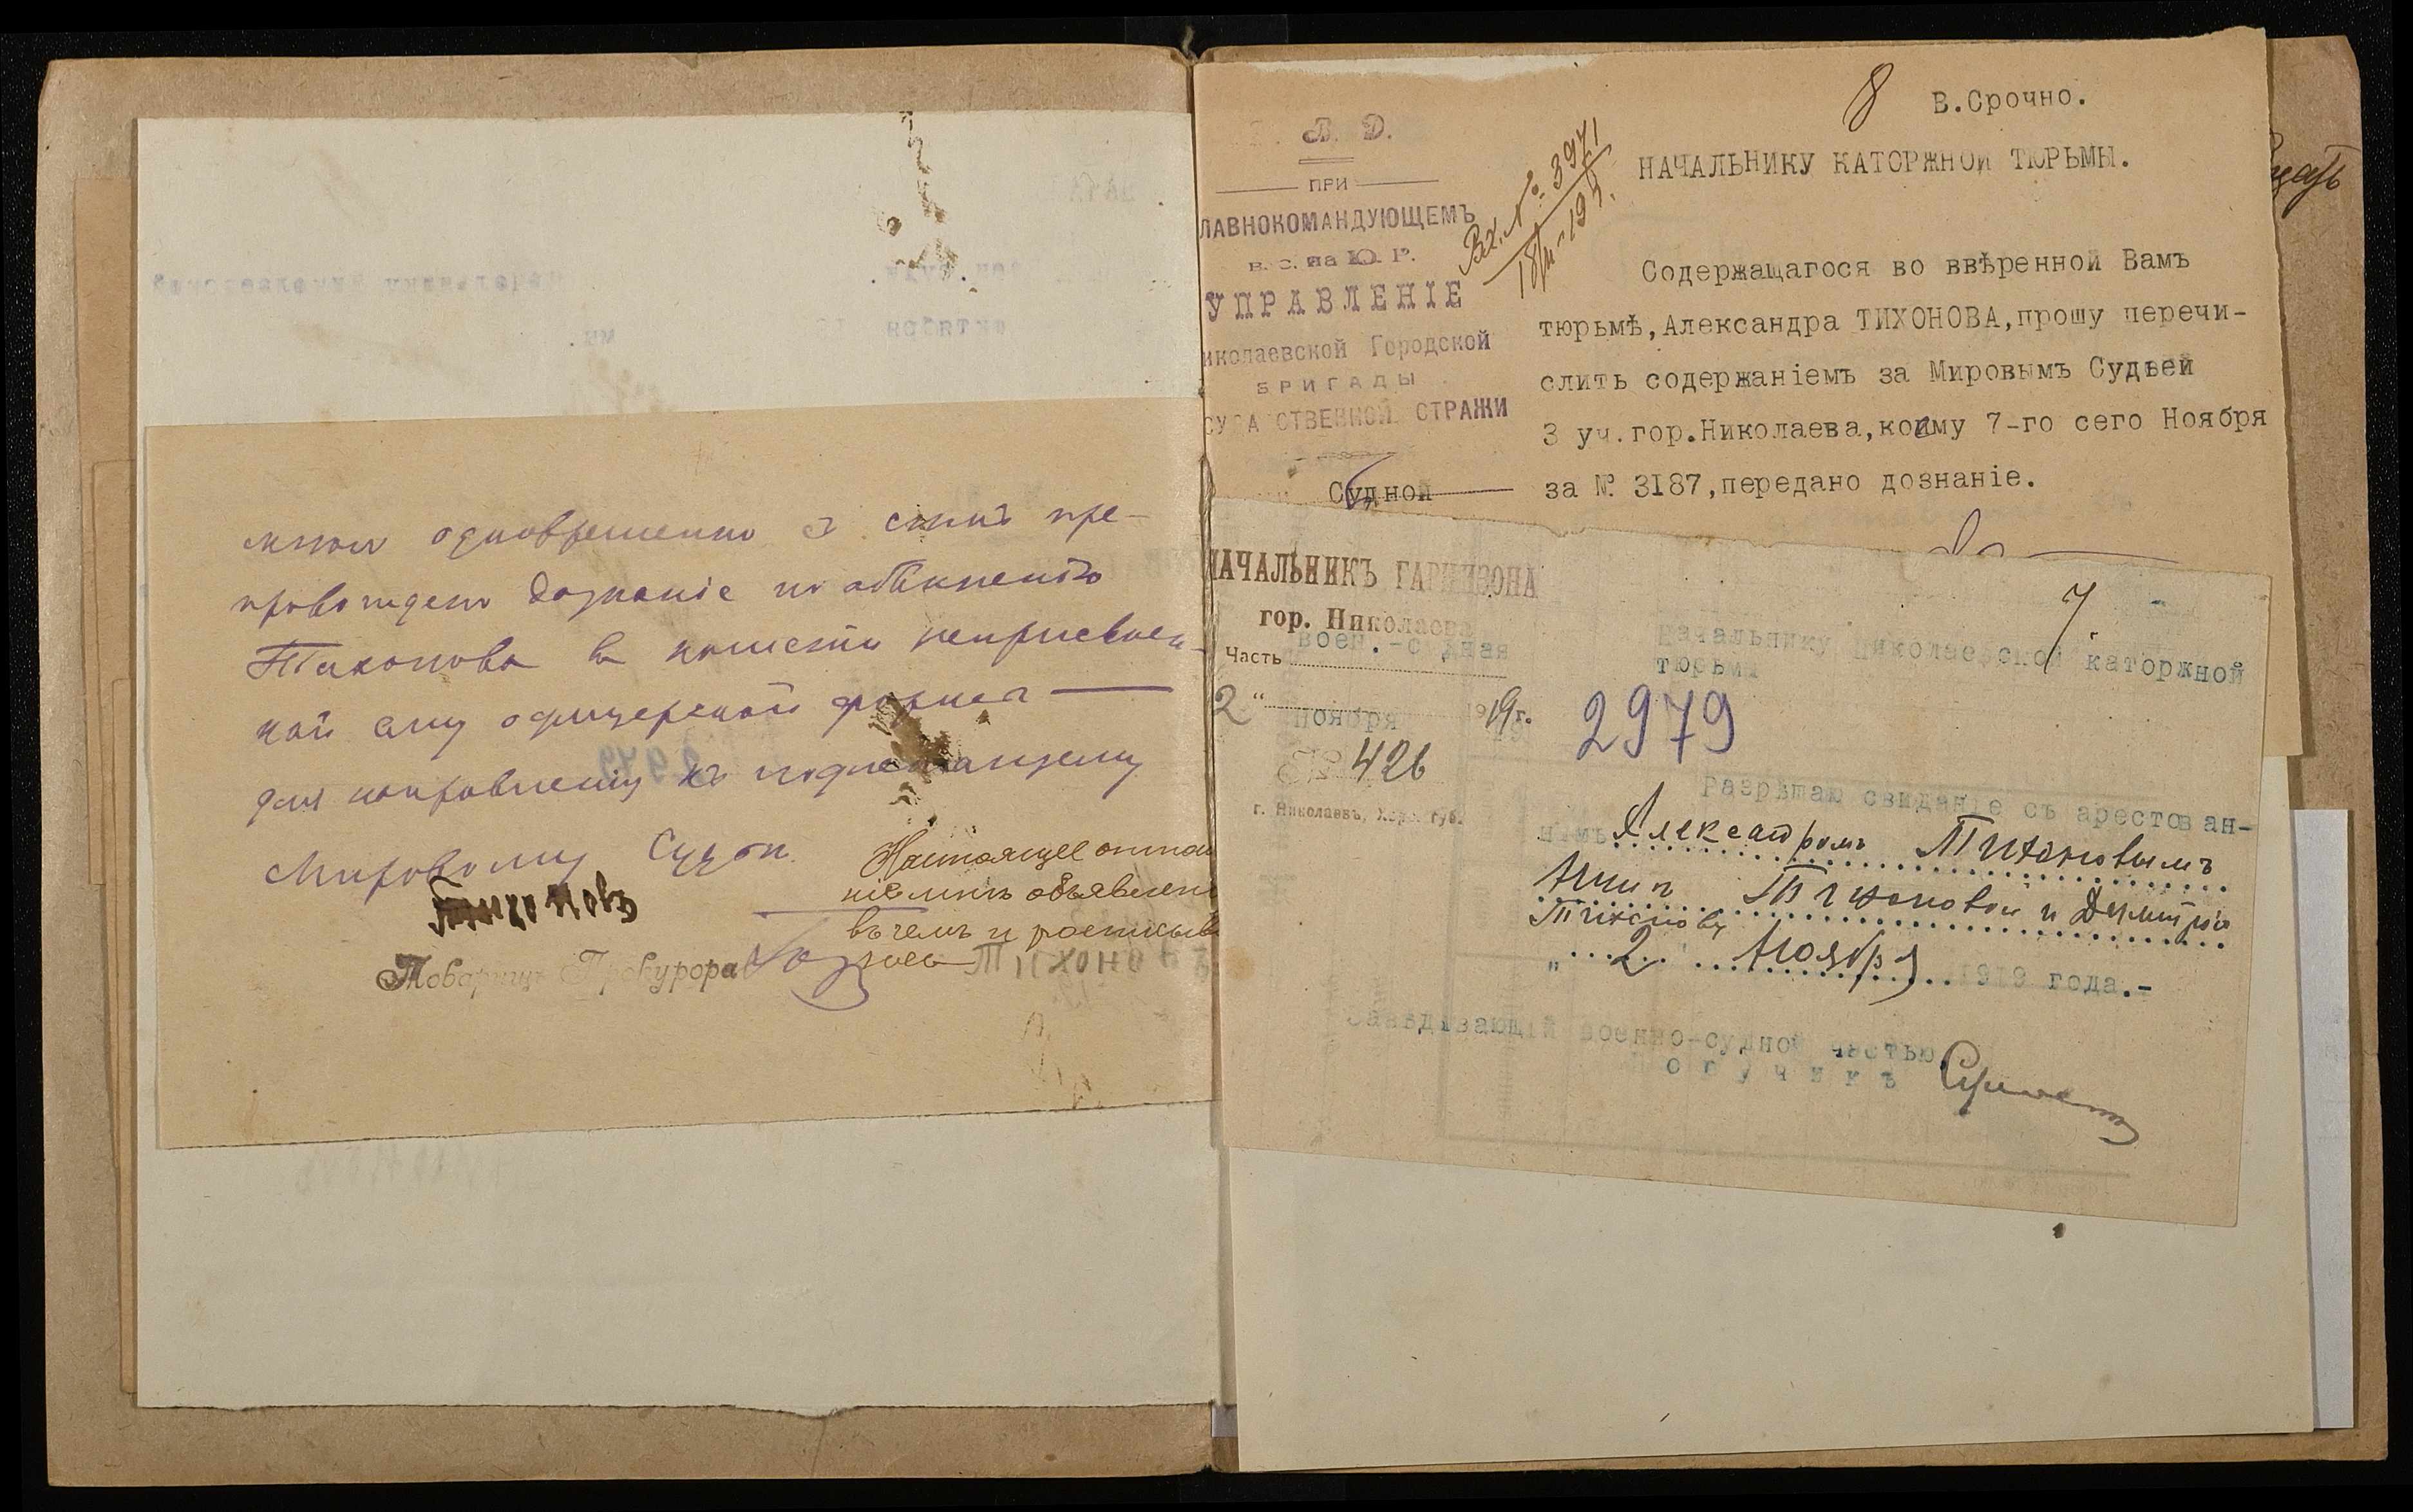 мною одновременно с симъ пре-
провождено дознаніе по обвиненію
Тихонова въ ношеніи неприсвоен-
ной ему офицерской формы
для направленія къ подлежащему
Мировому Судьѣ.
Тихоновъ
Товарищъ Прокурора
Настоящее отно
ніе мнѣ объявлено
въ чемъ и росписыв
Тихоновъ
8
В.Срочно.
В. Д.
ПРИ
ЛАВНОКОМАНДУЮЩЕМЪ
в. с. на Ю. Р.
УПРАВЛЕНІЕ
иколаевской Городской
БРИГАДЫ
СУДА СТВЕННОЙ СТРАЖИ
Судной
Вх. № 3971
НАЧАЛЬНИКУ КАТОРЖНОЙ ТЮРЬМЫ.
Содержащагося во ввѣренной Вамъ
тюрьмѣ,Александра ТИХОНОВА,прошу перечи-
слить содержаніемъ за Мировымъ Судьей
3 уч.гор.Николаева,коему 7-го сего Ноября
за № 3187,передано дознаніе.
НАЧАЛЬНИКЪ ГАРНИЗОНА
гор. Николаева
Часть воен.-судная
2 " ноября 1919г.
№ 426
г. Николаевъ, Херс. губ.
7
Начальнику Николаевской каторжной
тюрьмы
2979
Разрѣшаю свиданіе съ арестован-
нымъ Александромъ Тихоновымъ
Аннѣ Тихоновой и Дмитрію
Тихонову
" 2 " Ноября 1919 года.-
Завѣдывающій военно-судной частью,
Поручикъ